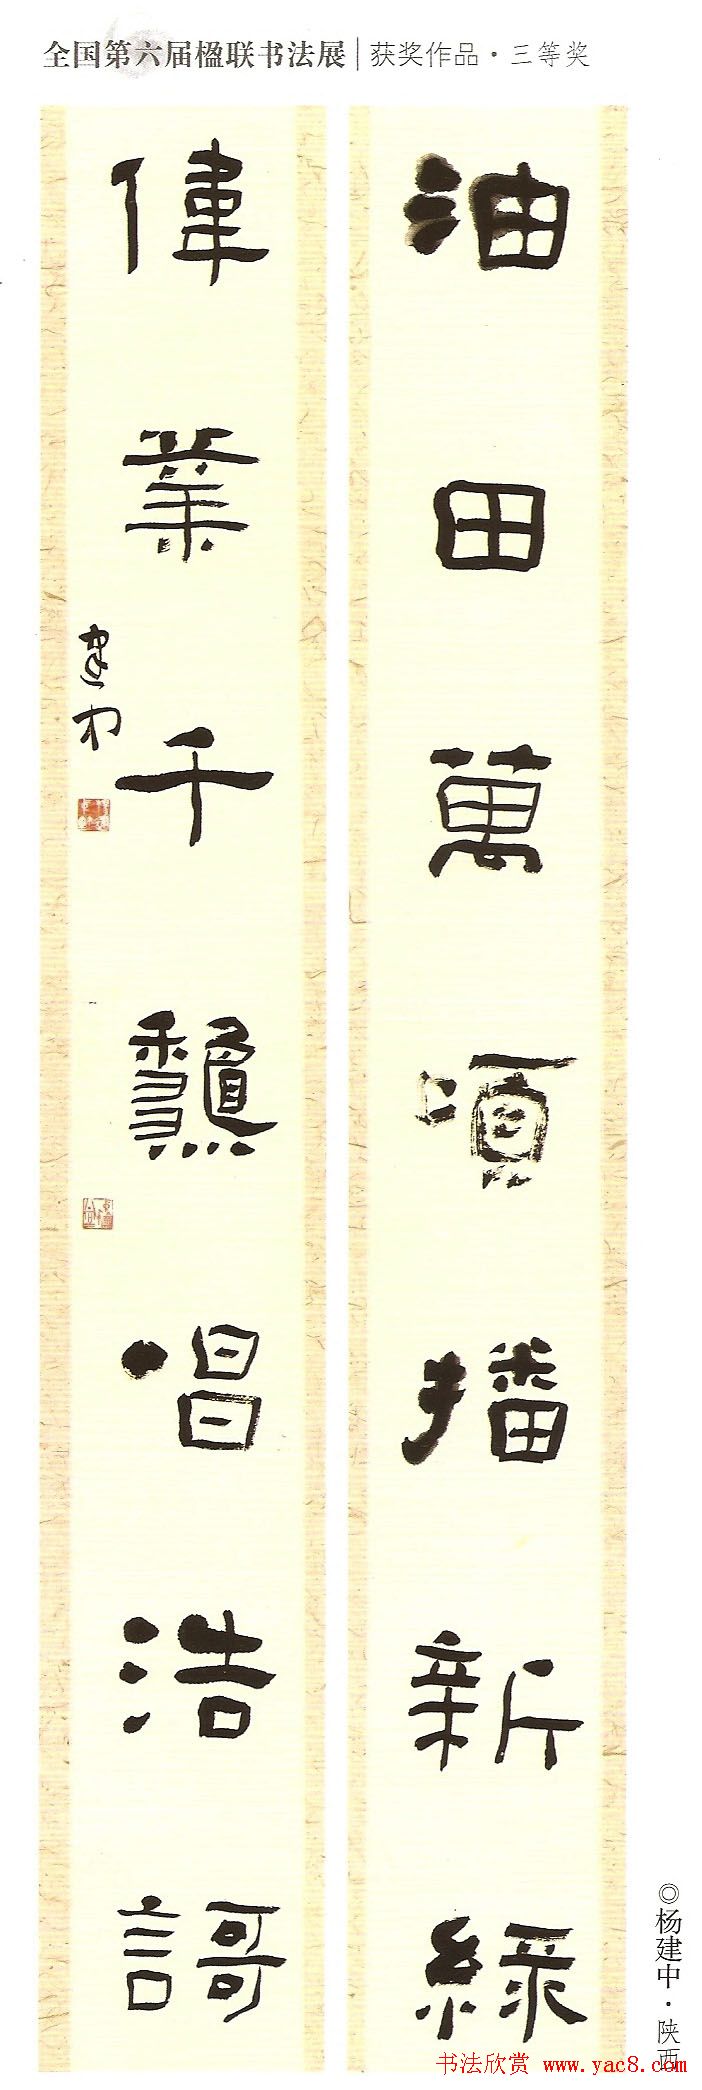 全国第六届楹联书法展|获奖作品·三等奖
油田萬頃播新綠
偉業千龝唱浩謌
建中
◎杨建中·陕西
书法欣赏 www.yac8.com